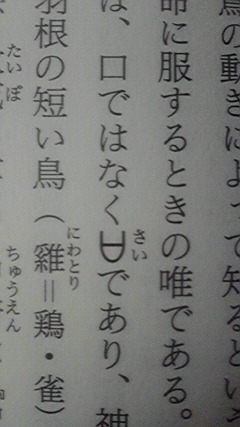 鳥の動きによって知るという
命に服するときの唯である。
は、口ではなく𠙵であり、神
さい
羽根の短い鳥（雞＝鶏・雀）
にわとり
たいぼ
ちゅうえん